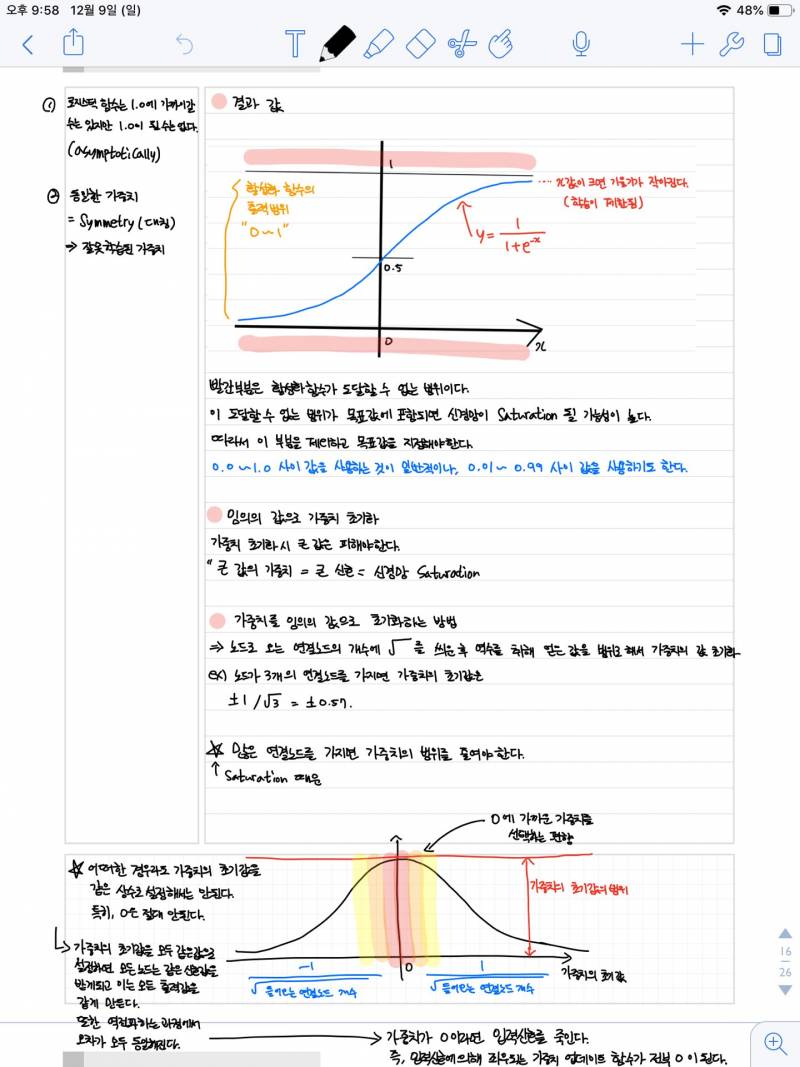 오후 9:58 12월 9일 (일)
48%
① 로지스틱 함수는 1.0에 가까이갈
수는 있지만 1.0이 될 수는 없다.
(asymptotically)
② 동일한 가중치
= Symmetry (대칭)
⇒ 잘못 학습된 가중치
결과 값
1
활성화 함수의
출력 범위
"0~1"
···· x값이 크면 기울기가 작아진다.
(학습이 제한됨)
y = 1 / 1+e^-x
0.5
0
x
빨간부분은 활성화함수가 도달할 수 없는 범위이다.
이 도달할 수 없는 범위가 목표값에 포함되면 신경망이 Saturation 될 가능성이 높다.
따라서 이 부분을 제외하고 목표값을 지정해야한다.
0.0~1.0 사이 값을 사용하는 것이 일반적이나, 0.01~0.99 사이 값을 사용하기도 한다.
임의의 값으로 가중치 초기화
가중치 초기화 시 큰 값은 피해야한다.
" 큰 값의 가중치 = 큰 신호 = 신경망 Saturation
가중치를 임의의 값으로 초기화하는 방법
⇒ 노드로 오는 연결노드의 개수에 √ 를 씌운 후 역수를 취해 얻은 값을 범위로 해서 가중치의 값 초기화
ex) 노드가 3개의 연결노드를 가지면 가중치의 초기값은
±1/√3 = ±0.57.
☆ 많은 연결노드를 가지면 가중치의 범위를 줄여야 한다.
↑ Saturation 때문
0에 가까운 가중치를
선택하는 편향
☆ 어떠한 경우라도 가중치의 초기값을
같은 상수로 설정해서는 안된다.
특히, 0은 절대 안된다.
가중치의 초기값의 범위
가중치의 초기값을 모두 같은값으로
설정하면 모든 노드는 같은 신호값을
받게되고 이는 모든 출력값을
같게 만든다.
또한 역전파하는 과정에서
오차가 모두 동일해진다.
-1
√들어오는 연결노드 개수
0
1
√들어오는 연결노드 개수
가중치의 초기값
16
26
가중치가 0이라면 입력신호를 죽인다.
즉, 입력신호에 의해 좌우되는 가중치 업데이트 함수가 전부 0이 된다.